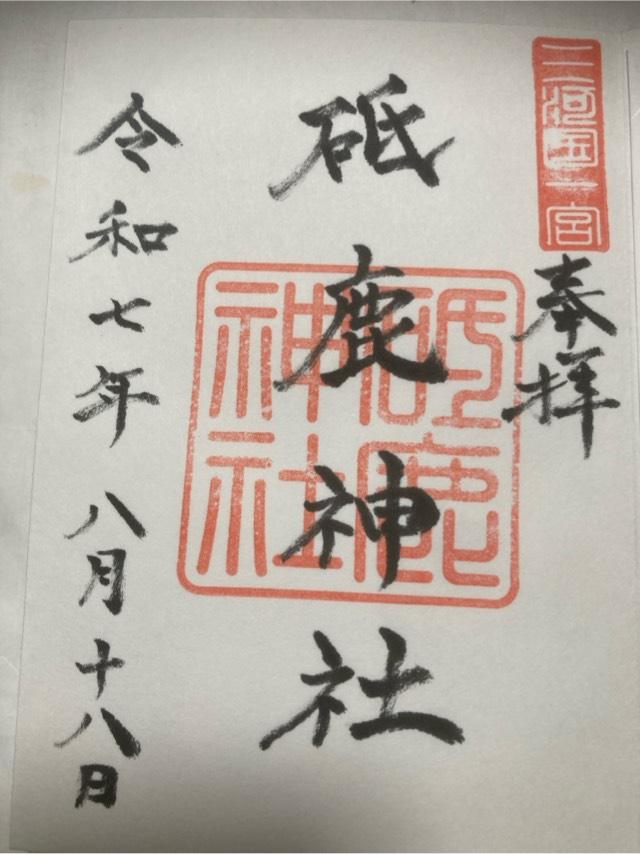 三河国一宮
奉拝
砥鹿神社
砥鹿
神社
令和七年八月十八日